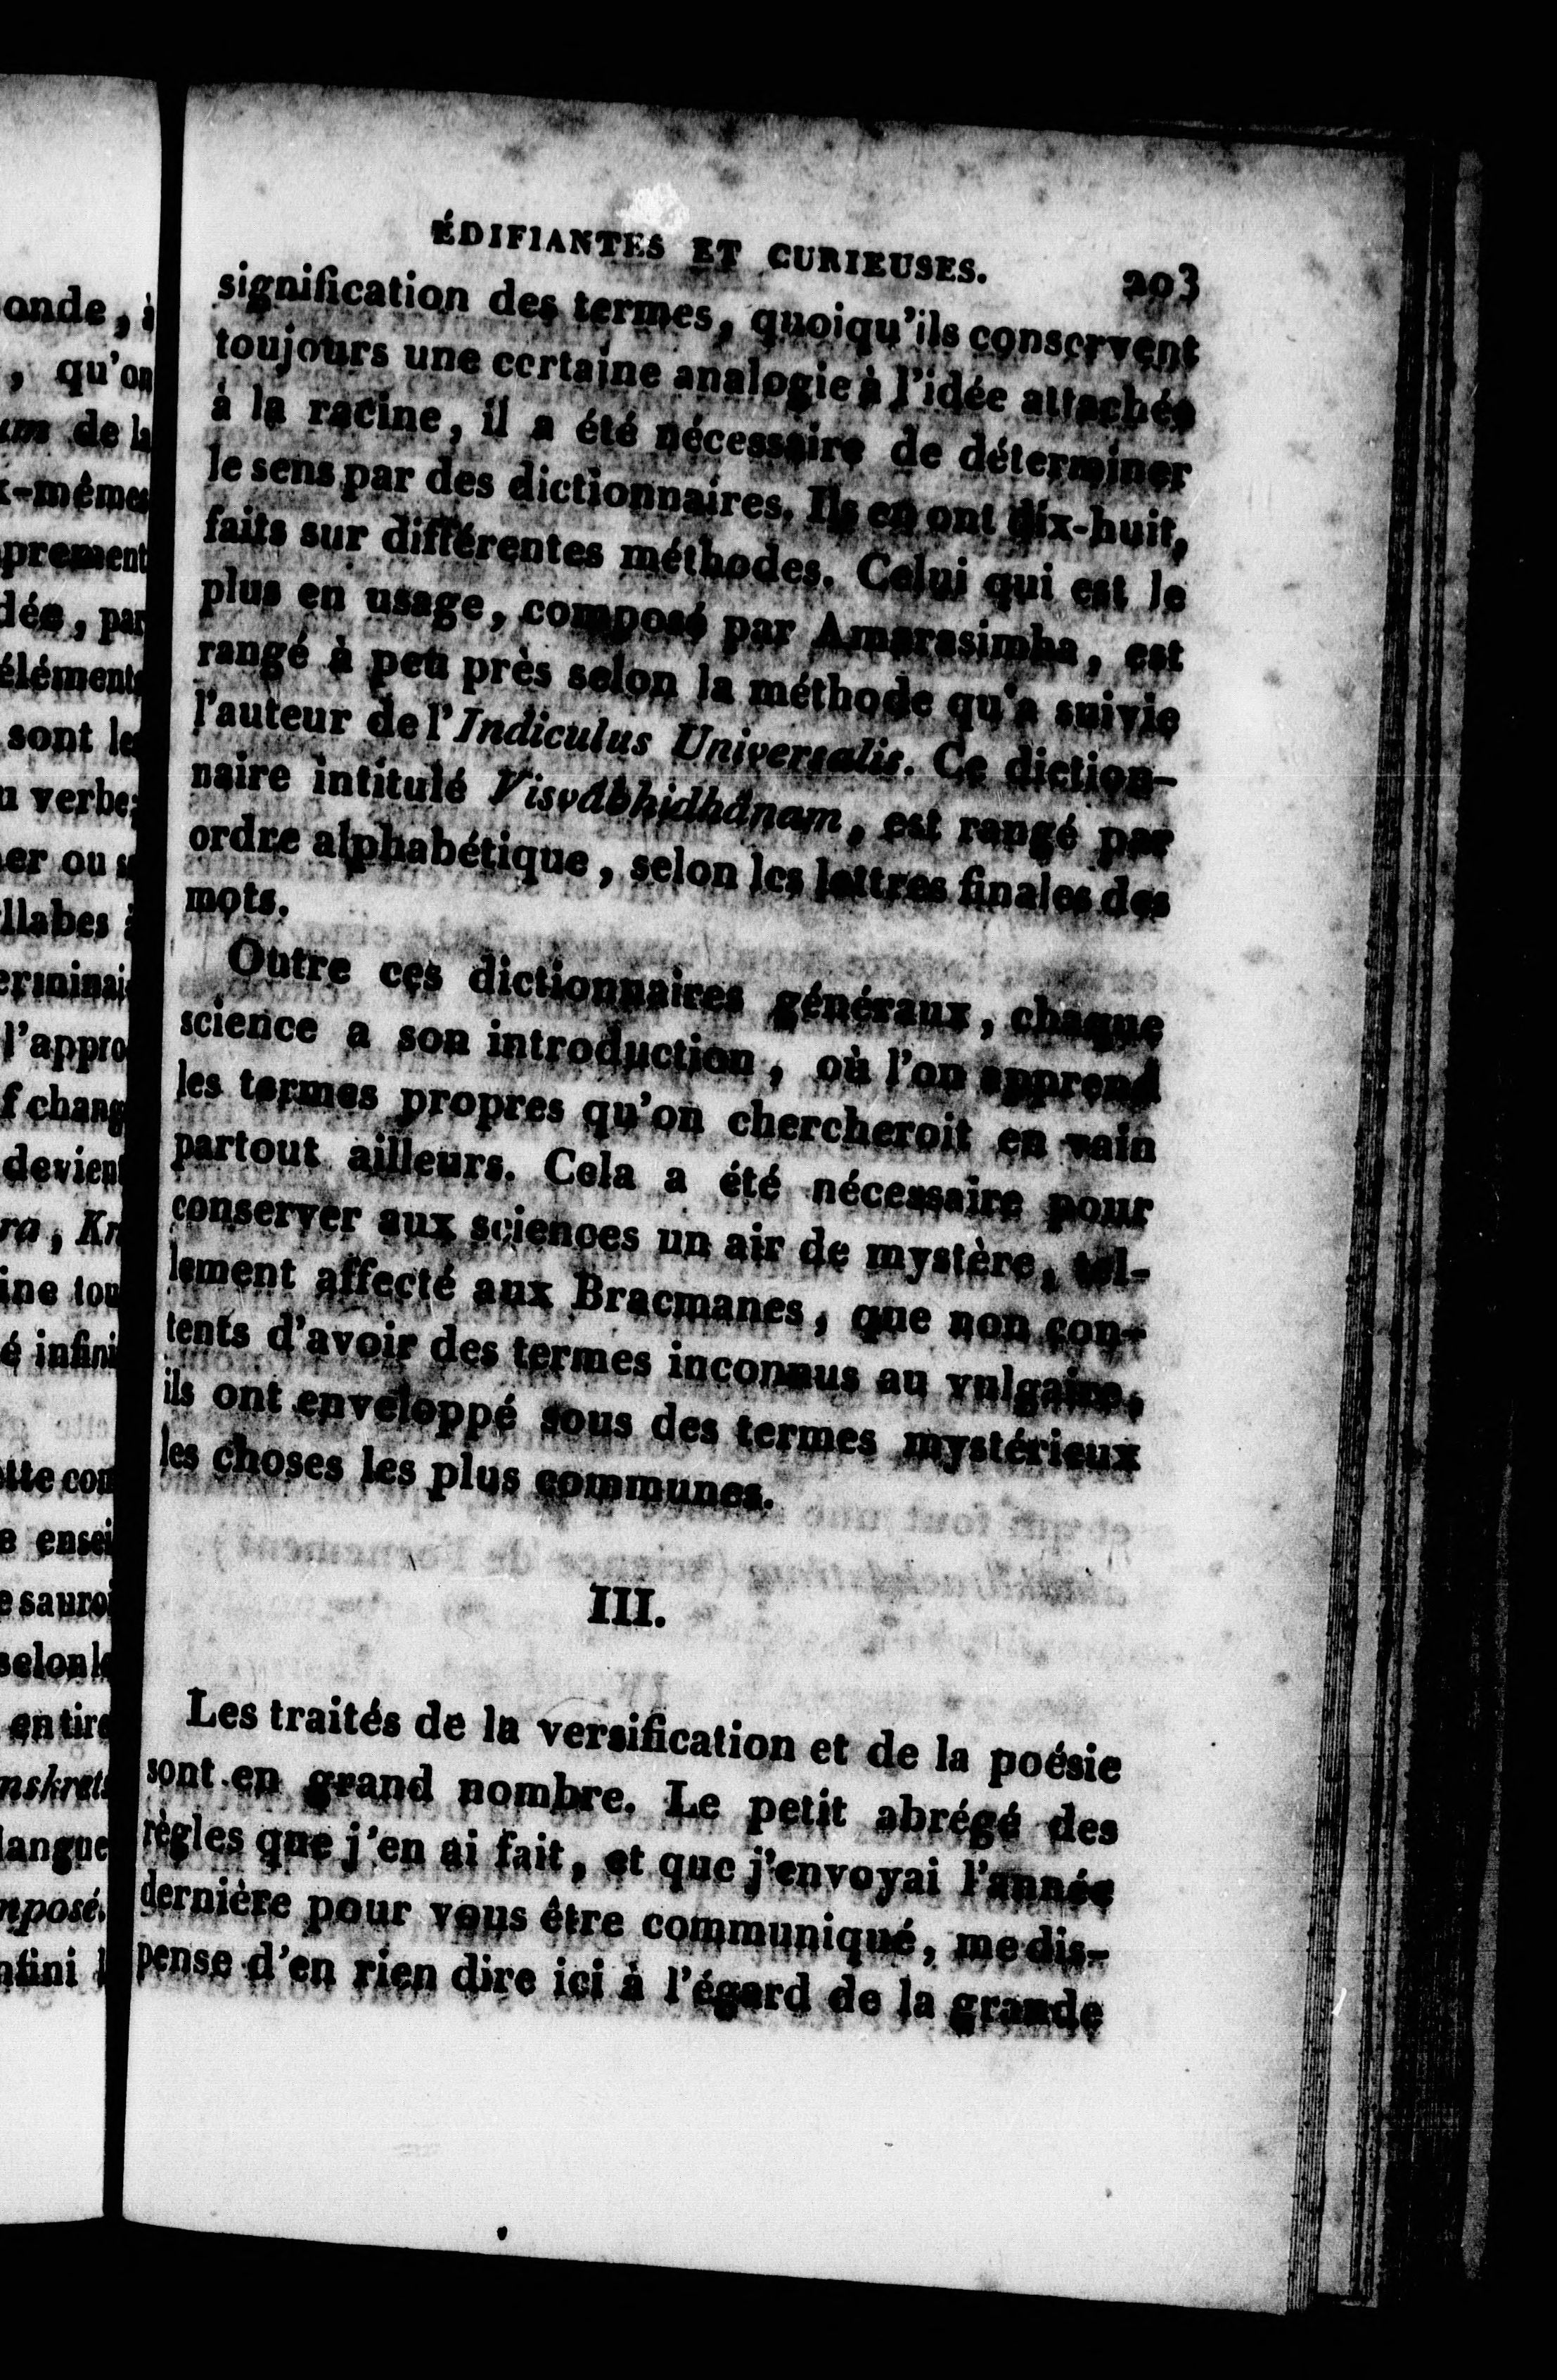 ÉDIFIANTES ET CURIEUSES. 203
signification des termes, quoiqu'ils conservent
toujours une certaine analogie à l'idée attachée
à la racine, il a été nécessaire de déterminer
le sens par des dictionnaires. Ils en ont dix-huit,
faits sur différentes méthodes. Celui qui est le
plus en usage, composé par Amarasimha, est
rangé à peu près selon la méthode qu'a suivie
l'auteur de l'Indiculus Universalis. Ce diction-
naire intitulé Visvâbhidhânam, est rangé par
ordre alphabétique, selon les lettres finales des
mots.
Outre ces dictionnaires généraux, chaque
science a son introduction, où l'on apprend
les termes propres qu'on chercheroit en vain
partout ailleurs. Cela a été nécessaire pour
conserver aux sciences un air de mystère, tel-
lement affecté aux Bracmanes, que non con-
tents d'avoir des termes inconnus au vulgaire,
ils ont enveloppé sous des termes mystérieux
les choses les plus communes.
III.
Les traités de la versification et de la poésie
sont en grand nombre. Le petit abrégé des
règles que j'en ai fait, et que j'envoyai l'année
dernière pour vous être communiqué, me dis-
pense d'en rien dire ici à l'égard de la grande